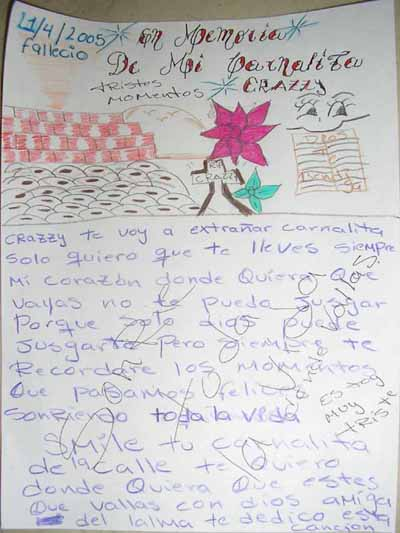 11/4/2005
Fallecio
En Memoria
De Mi Carnalita
CRAZZY
tRistes
MOMENTOS
RIP
CRAZZY
DIOS
te
Bendiga
CRAZZY te voy a extrañar carnalita
Solo quiero que te lleves siempre
Mi corazón donde Quiera Que
Vallas no te puedo Jusgar
Porque solo dios puede
Jusgarte Pero siempre te
Recordare los momentos
Que pasamos felices
Sonriendo toda la vida
Smile tu carnalita
de la calle te Quiero
donde Quiera Que estes
Que vallas con dios amiga
del lalma te dedico esta
cancion
Estoy
Muy
triste